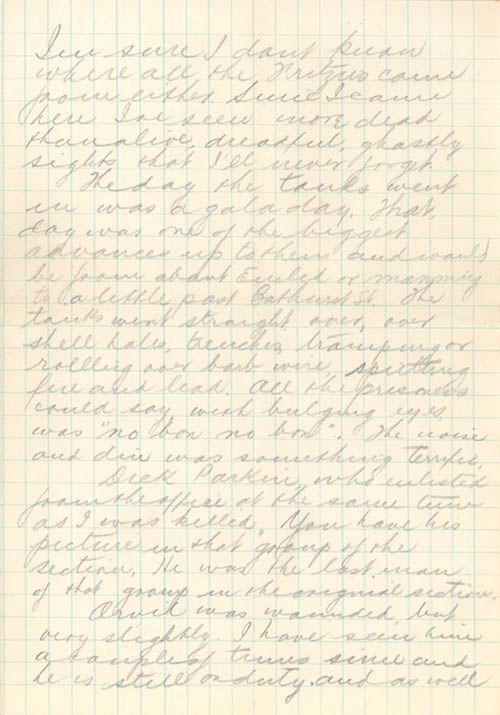 I'm sure I don't know
where all the Fritzies come
from either. Since I came
here I've seen more dead
than alive, dreadful, ghastly
sights that I'll never forget.
The day the tanks went
in was a gala day. That
day was one of the biggest
advances up to then and would
be from about Euclid or Manning
to a little past Bathurst St. The
tanks went straight over, over
shell holes, trenches, tramping or
rollling over barb wire, spitting
fire and lead. All the prisoners
could say with bulging eyes,
was "no bon no bon". The noise
and din was something terrific.
Dick Parkin, who enlisted
from the office at the same time
as I was killed. You have his
picture in that group of the
section. He was the last man
of that group in the original section.
Orvil was wounded, but
very slightly. I have seen him
a couple of times since and
he is still on duty. and as well